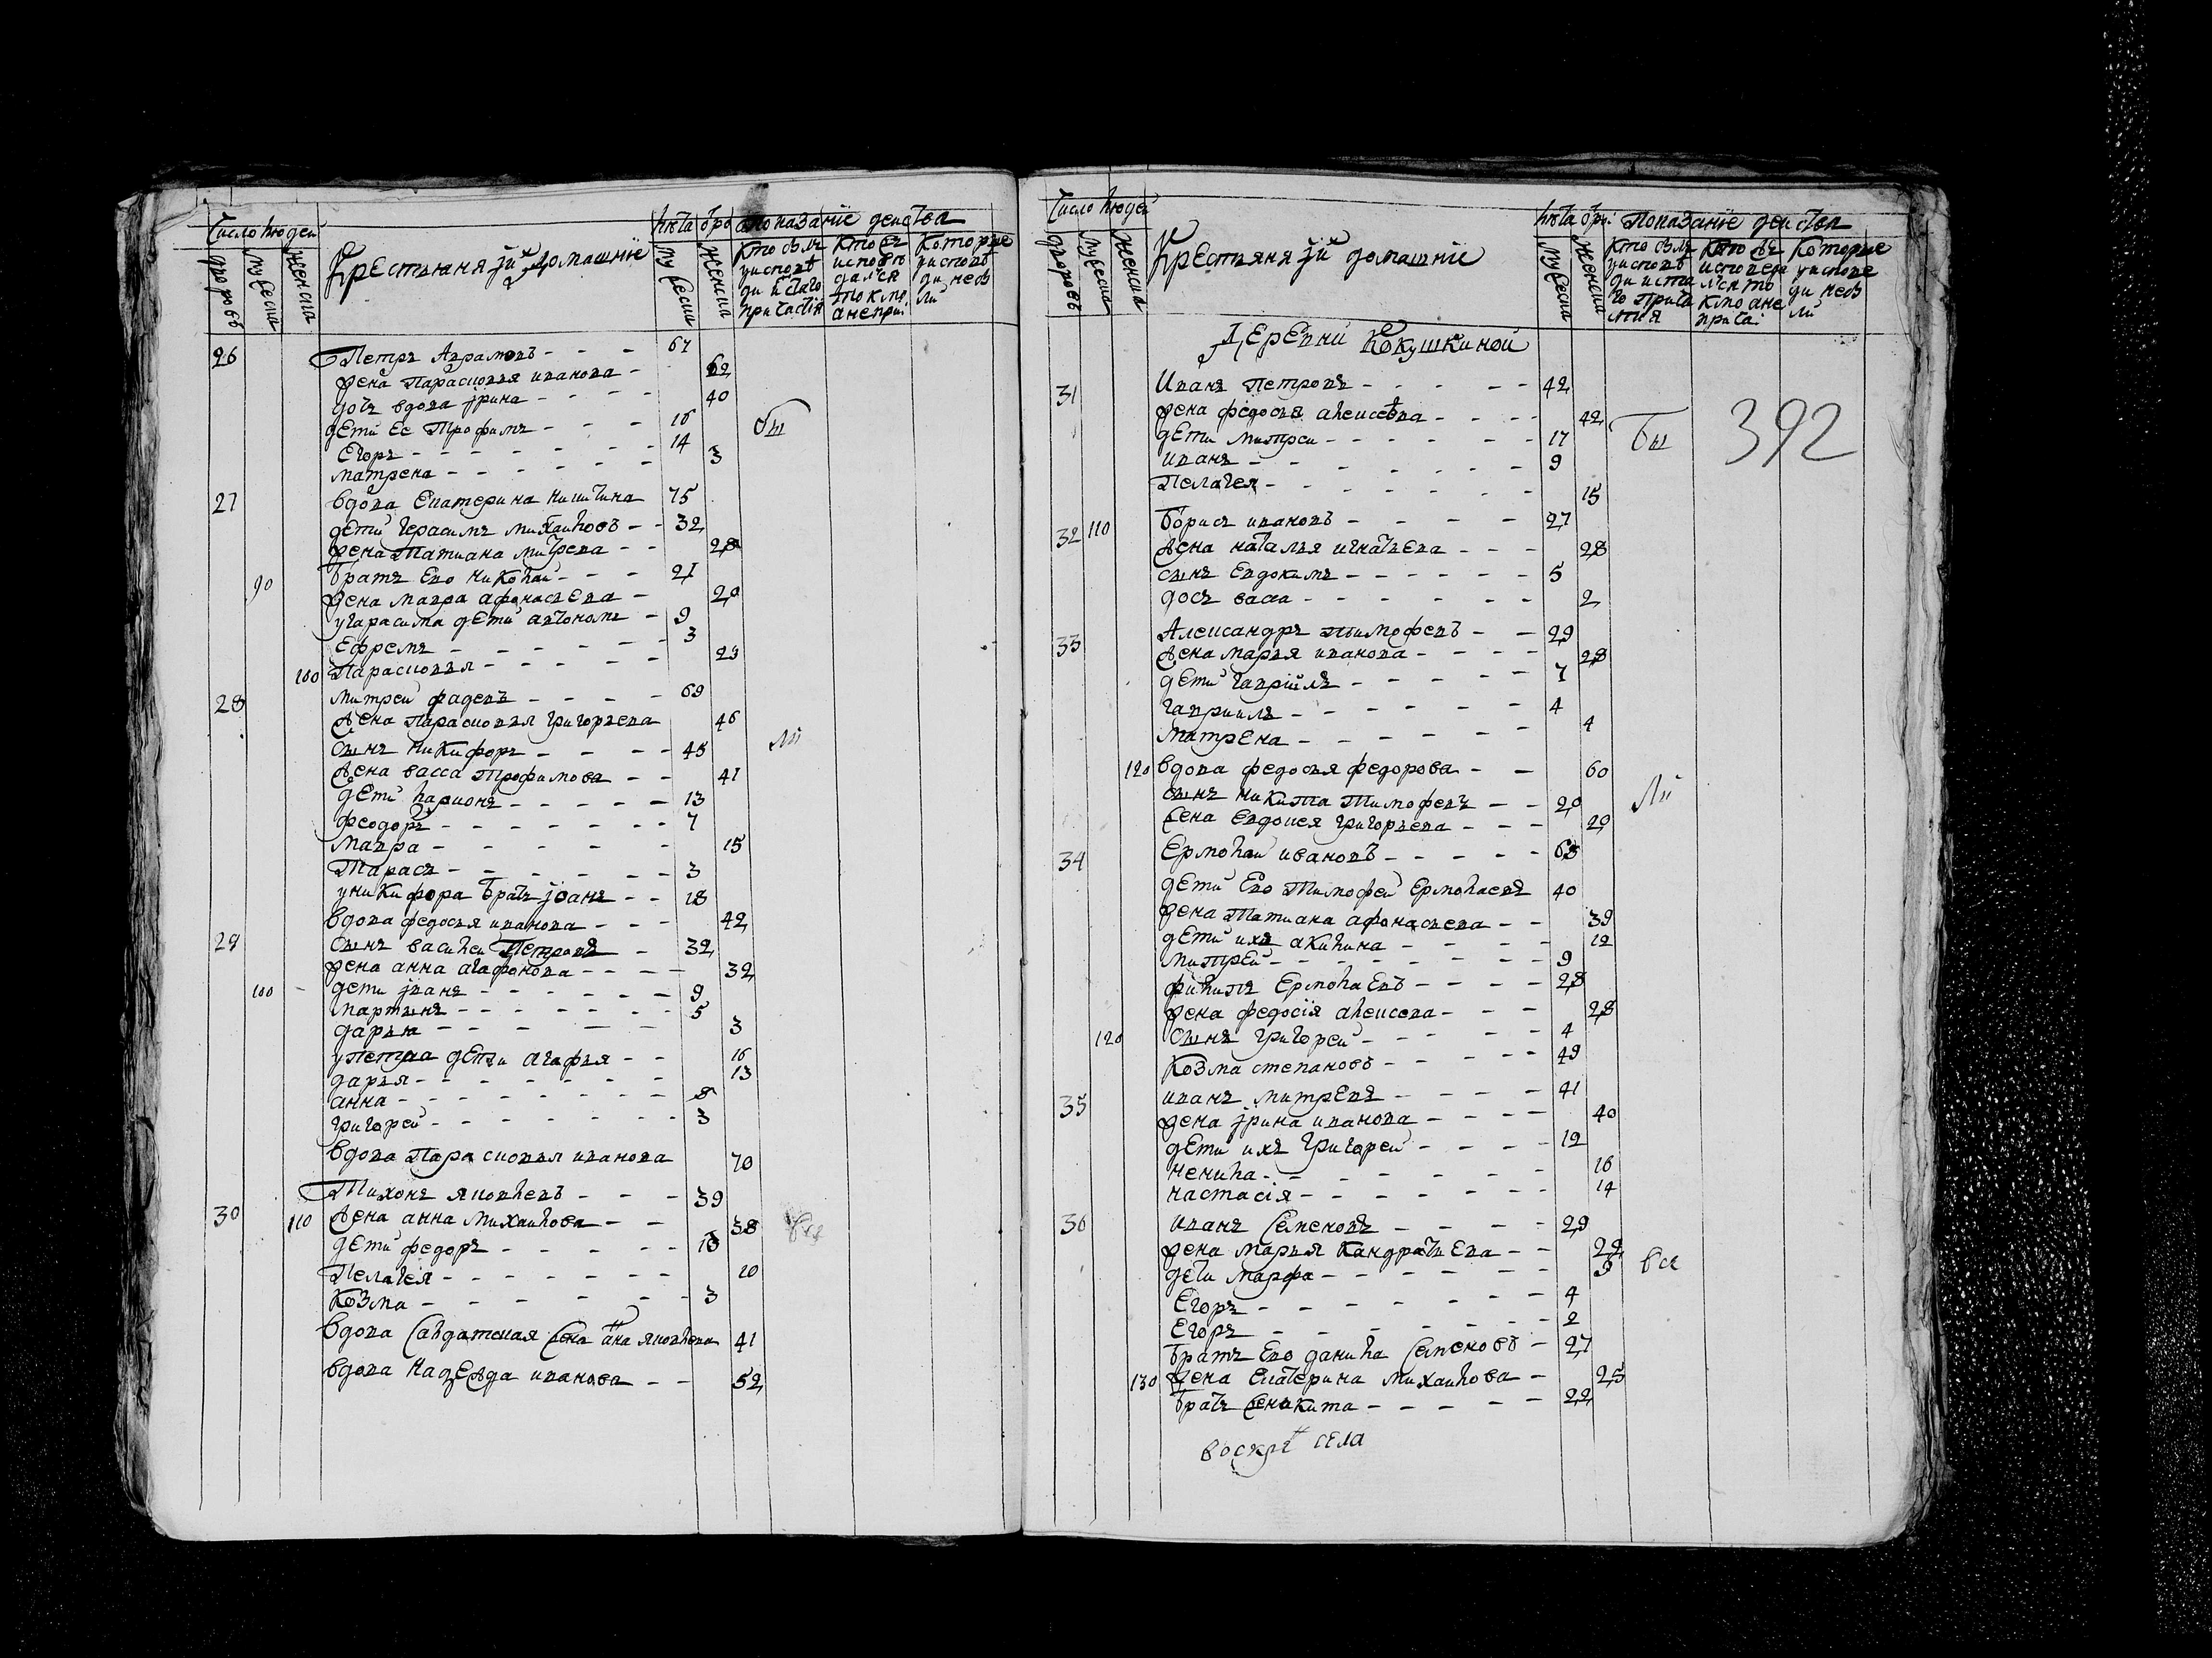 Число людей
дворовъ
мужеска
женска
Крестьяня и их домашние
лѣта
показание действа
мужеска
женска
26 Петръ Аврамовъ - - - 67
жена Парасковья иванова - 62
дочь вдова ирина - - - - 40
дети ее Трофимъ - - - 16
Егоръ - - - - - - - 14
матрена - - - - - - 3
бы
27 вдова Екатерина никитина 75
дети Герасимъ михаиловъ - - 32
жена Татиана митрева - - 28
90 братъ ево николаи - - - 21
жена мавра афонасьева - 20
у гарасима дети антономъ - 9
Ефремъ - - - - - 3
100 Парасковья - - - - - 23
28 митреи фадеевъ - - - - 69
жена Парасковья григорьева 46
сынъ никифоръ - - - - 45
ли
жена васса Трофимова - - 41
дети ларионъ - - - - - 13
феодоръ - - - - - - - 7
мавра - - - - - - 15
Тарасъ - - - - - - 3
у никифора братъ иоанъ - - 18
вдова федосья иванова - - - 42
29 сынъ василеи Петровъ - 32
жена анна агафонова - - - - 32
100 дети иванъ - - - - - - 9
мартынъ - - - - - - - 5
дарья - - - - - 3
у петра дети агафья - - 16
дарья - - - - - - - 13
анна - - - - - - - 8
григореи - - - - - - - 3
вдова Парасковья иванова 70
30 Тихонъ яковлевъ - - - 39
110 жена анна михаилова - - 38
все
дети федоръ - - - - - 13
Пелагея - - - - - - - 10
козма - - - - - - 3
вдова салдатская жена анна яковлева 41
вдова надежда иванова - - 52
Число людей
дворовъ
мужеска
женска
Крестьяня и их домашние
лѣта
Показание действа
мужеска
женска
Деревни Кокушкиной
31 Иванъ Петровъ - - - - - 42
жена федосья алексеева - - - - 42
дети митреи - - - - - - 17
Бы
392
иванъ - - - - - - - 9
Пелагея - - - - - - - 15
32 110 борисъ ивановъ - - - - 27
жена наталья игнатьева - - - 28
сынъ Евдокимъ - - - - - - 5
дочь васса - - - - - - 2
33 Александръ тимофеевъ - - 29
жена марья иванова - - - - 28
дети гавриилъ - - - - - 7
гавриилъ - - - - - - 4
матрена - - - - - - 4
120 вдова федосья федорова - - 60
сынъ никита тимофеевъ - - 20
ли
жена Евдокея григорьева - - - 20
34 Ермолаи ивановъ - - - - - 63
дети Ево Тимофеи Ермолаевъ 40
жена Татиана афонасьева - - 39
дети ихъ акилина - - - - 12
митреи - - - - - - - 9
филипъ Ермолаевъ - - - - 28
жена федосия алексеева - - - 28
120 сынъ григореи - - - - - 4
козма степановъ - - - - - 49
35 иванъ митревъ - - - - 41
жена ирина иванова - - - - 40
дети ихъ григореи - - - - 12
ненила - - - - - - - 16
настасия - - - - - - - 14
36 иванъ Семеновъ - - - - 29
жена марья кандратьева - - 22
дети марфа - - - - - - 9
все
Егоръ - - - - - - - 4
Егоръ - - - - - - - 2
братъ ево данила Семеновъ - 27
130 жена Екатерина михаилова - 25
братъ никита - - - - - 22
воскре села